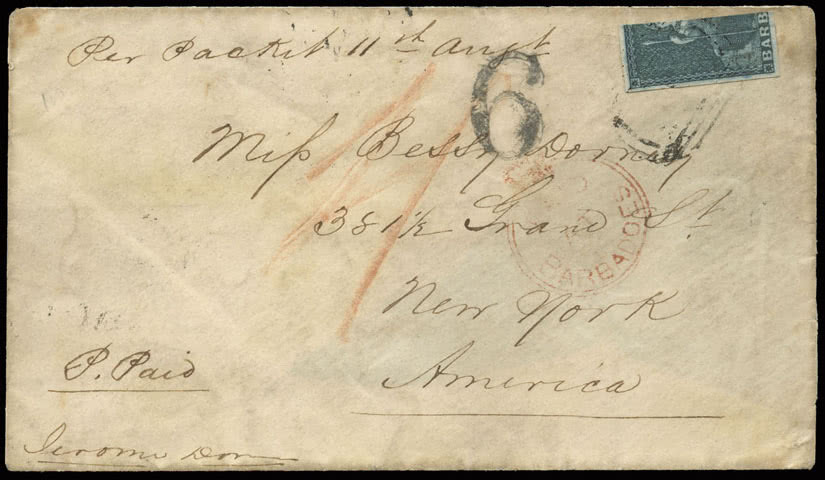 Per Packet 11th Augt
BARB
6
Miss Bessy Dornay
381½ Grand St
New York
America
BARBADOES
P. Paid
Jerome Dorn